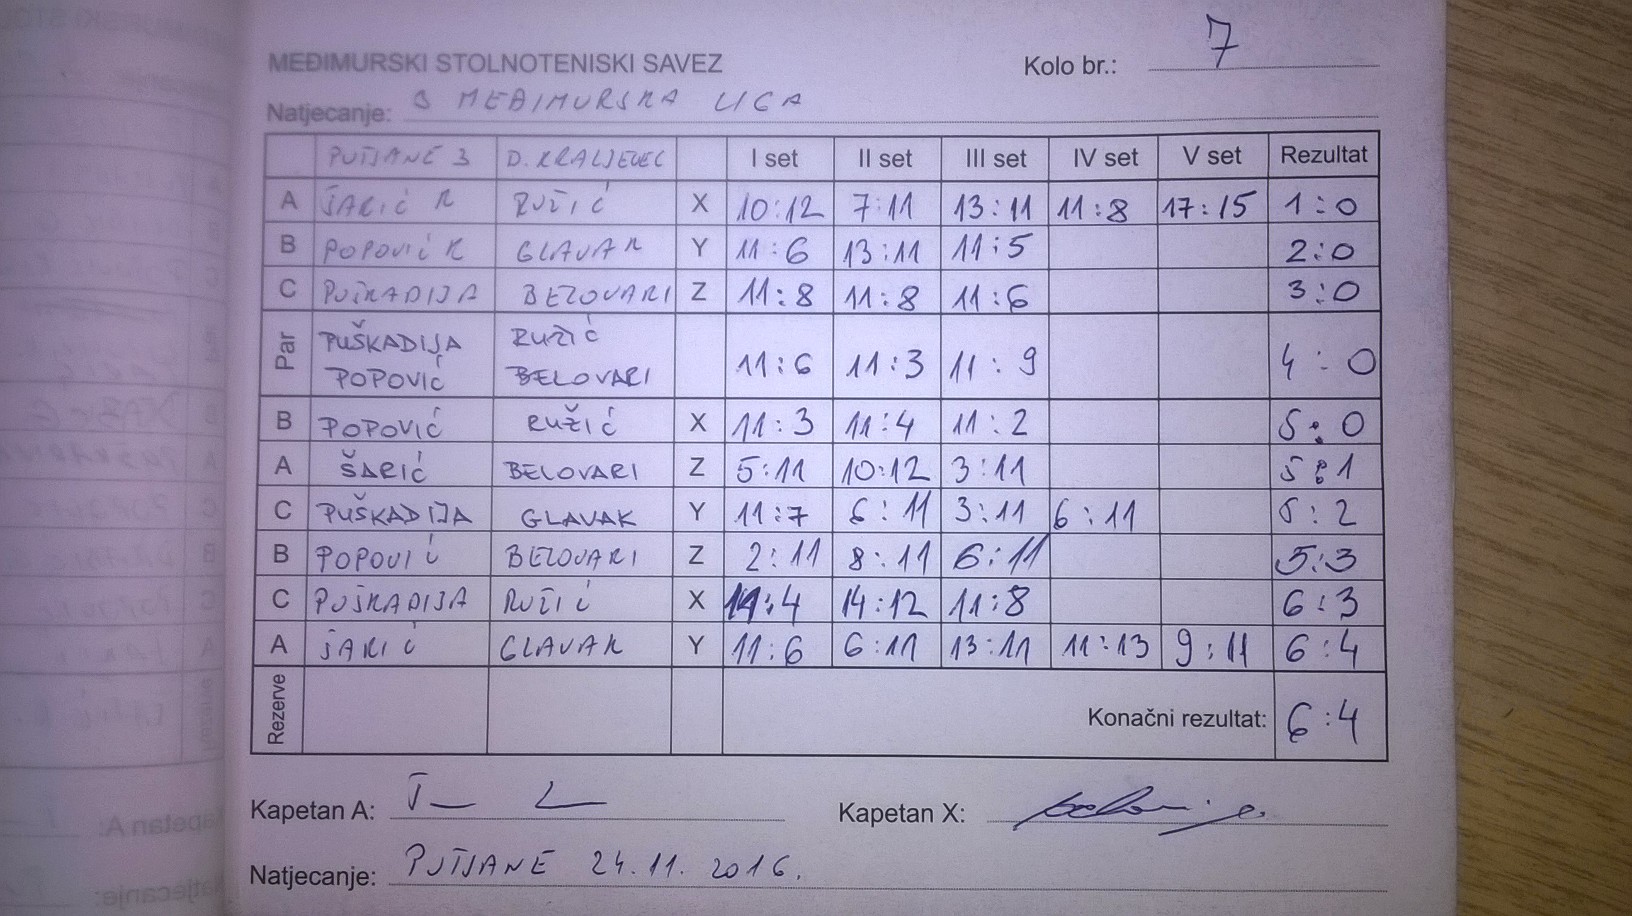 MEĐIMURSKI STOLNOTENISKI SAVEZ
Kolo br.: 7
Natjecanje: 3 MEĐIMURSKA LIGA
PUŠĆANE 3 D. KRALJEVEC I set II set III set IV set V set Rezultat
A ŠARIĆ R RUŽIĆ X 10:12 7:11 13:11 11:8 17:15 1:0
B POPOVIĆ K GLAVAK Y 11:6 13:11 11:5 2:0
C PUŠKADIJA BELOVARI Z 11:8 11:8 11:6 3:0
Par PUŠKADIJA RUŽIĆ
POPOVIĆ BELOVARI 11:6 11:3 11:9 4:0
B POPOVIĆ RUŽIĆ X 11:3 11:4 11:2 5:0
A ŠARIĆ BELOVARI Z 5:11 10:12 3:11 5:1
C PUŠKADIJA GLAVAK Y 11:7 6:11 3:11 6:11 5:2
B POPOVIĆ BELOVARI Z 2:11 8:11 6:11 5:3
C PUŠKADIJA RUŽIĆ X 11:4 14:12 11:8 6:3
A ŠARIĆ GLAVAK Y 11:6 6:11 13:11 11:13 9:11 6:4
Rezerve Konačni rezultat: 6:4
Kapetan A: Kapetan X:
Natjecanje: 24.11.2016.